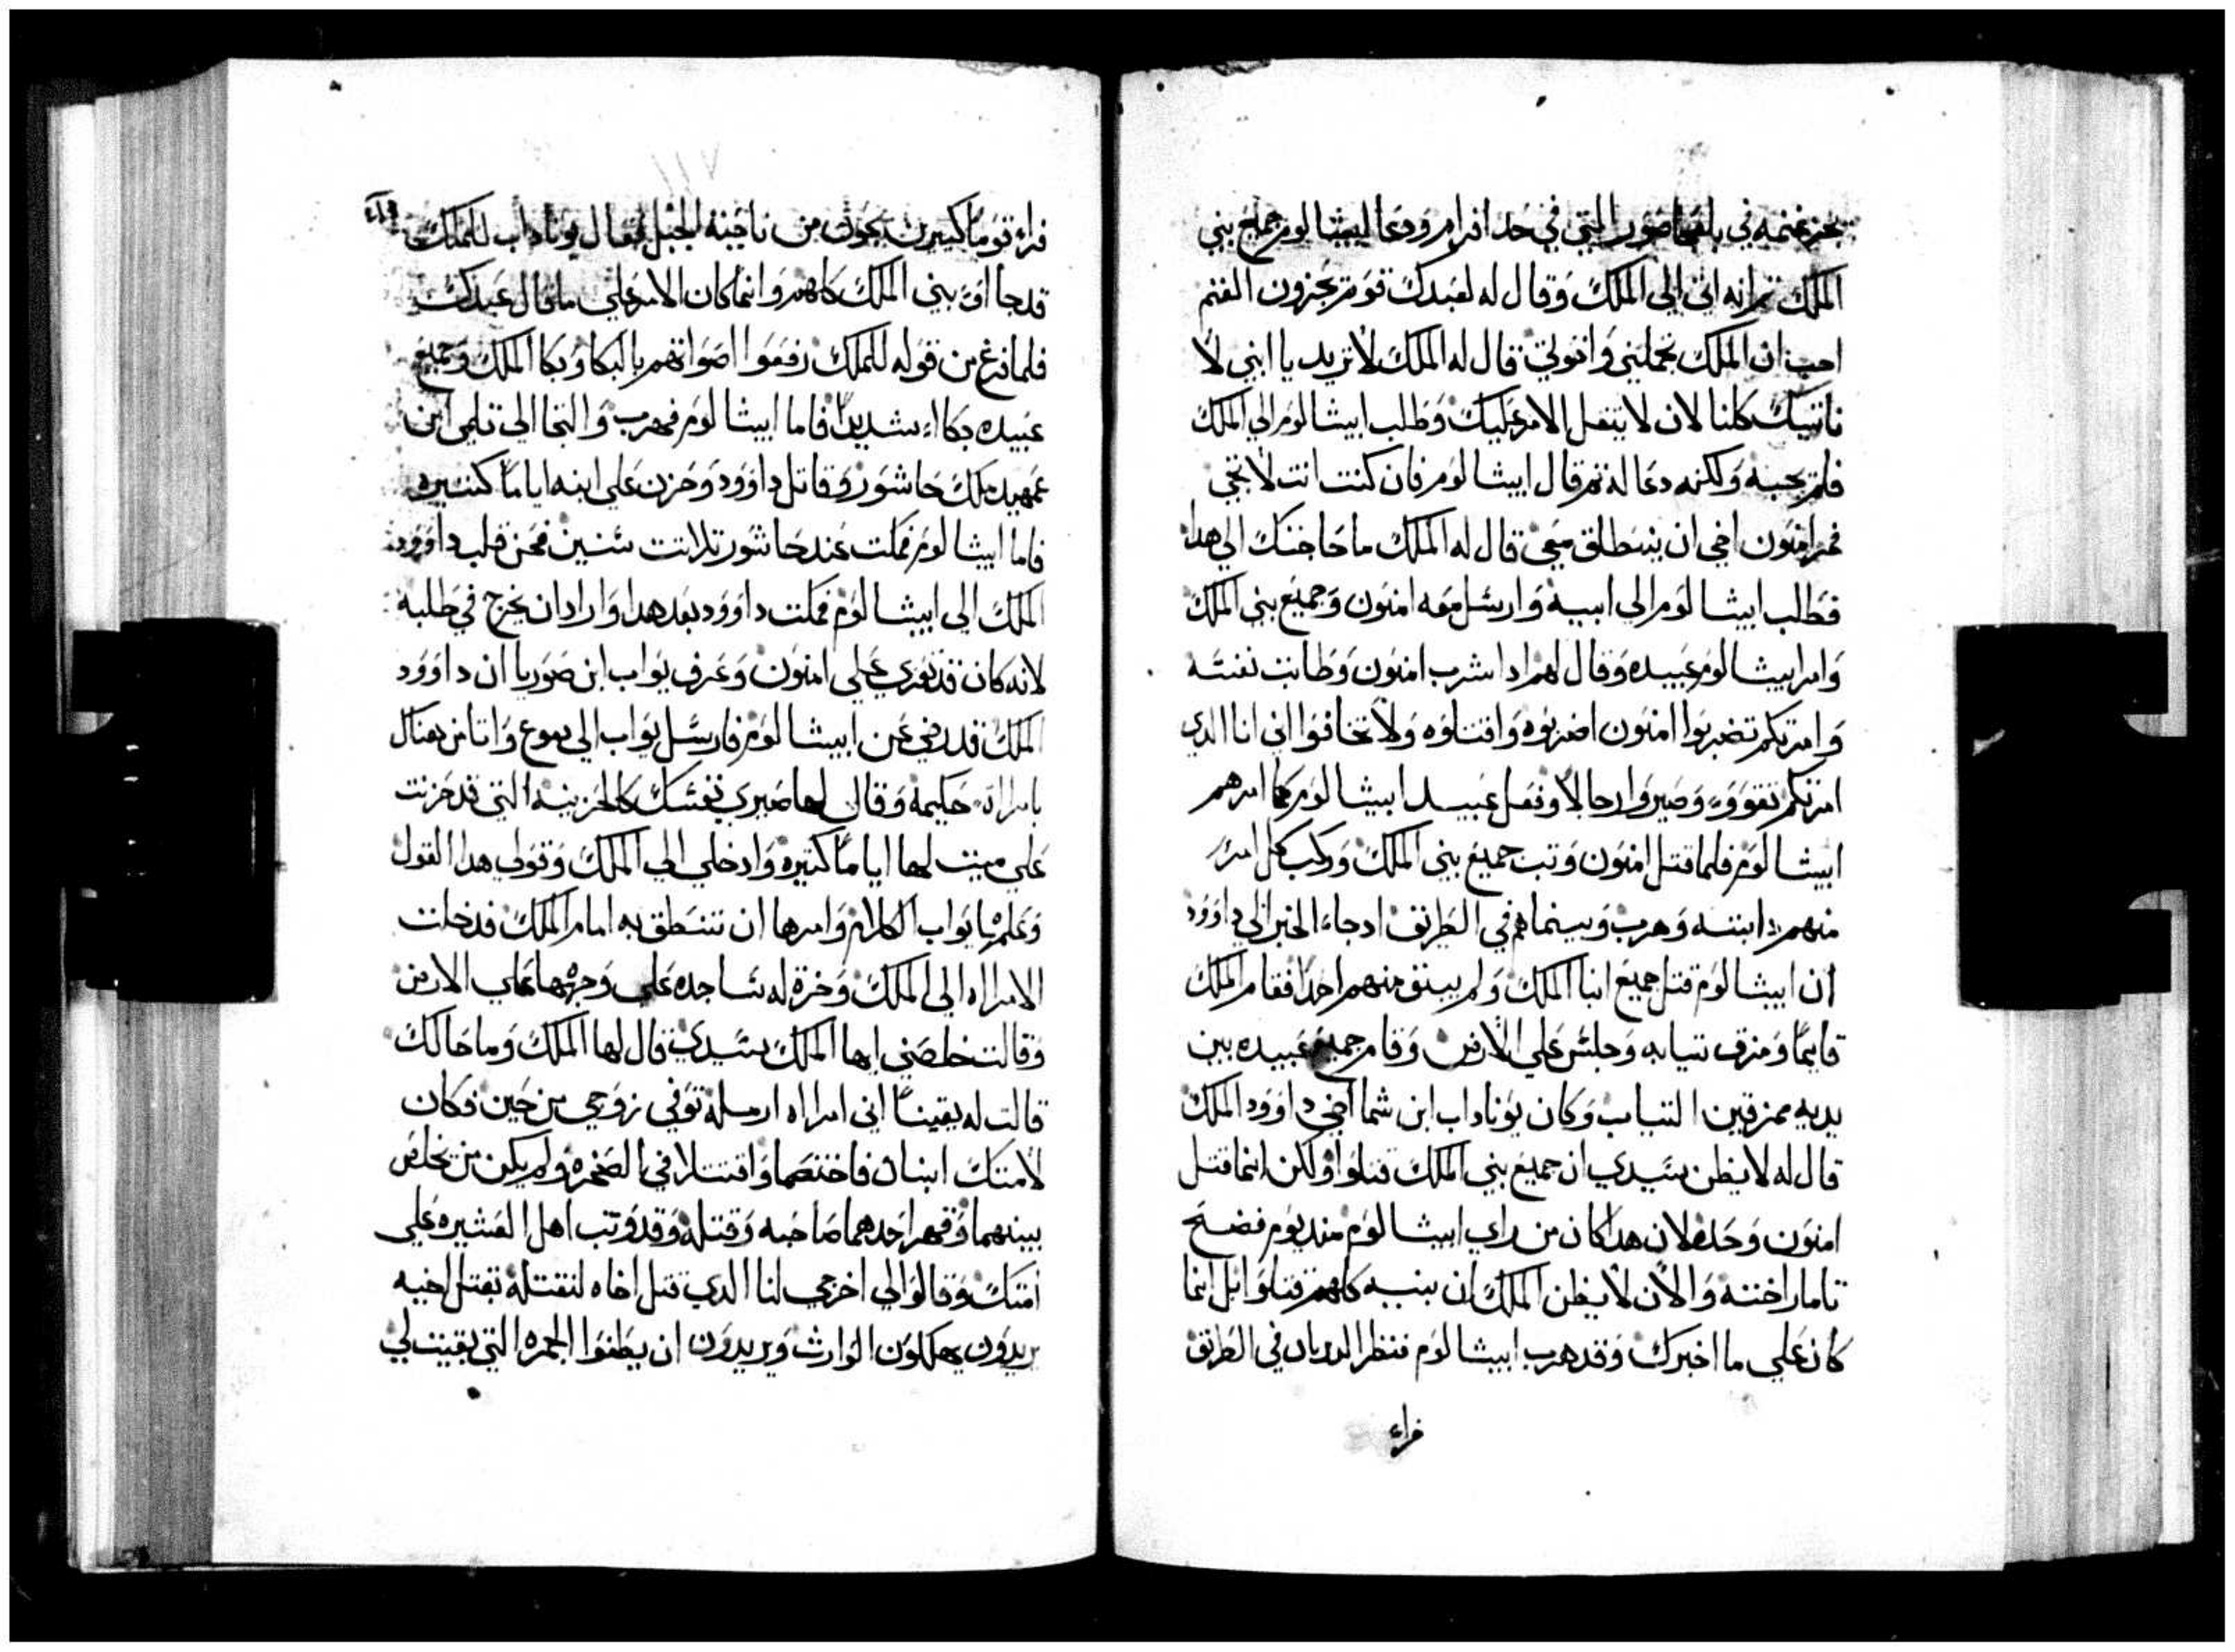 يجز غنمه في بلعاصور التي في حد افرام ودعا ابيشالوم جميع بني
الملك ثم انه اتى الي الملك وقال له لعبدك قوم يجزون الغنم
احب ان الملك يحملني واتولي قال له الملك لا تريد يا ابني لا
ناتيك كلنا لان لا يتقل الامر عليك وطلب ابيشالوم الي الملك
فلم يجبه ولكنه دعا له ثم قال ابيشالوم فان كنت انت لا تجي
فمر امنون اخي ان ينطلق معي قال له الملك ما حاجتك الي هدا
فطلب ابيشالوم الى ابيه وارسل معه امنون وجميع بني الملك
وامر ابيشالوم عبيده وقال لهم ادا شرب امنون وطابت نفسه
وامرتكم تضربوا امنون اضربوه واقتلوه ولا تخافوا اني انا الدي
امرتكم تقووو وصيروا رجالا وفعل عبيد ابيشالوم كما امرهم
ابيشالوم فلما قتل امنون وتب جميع بني الملك وركب كل امرء
منهم دابته وهرب وبينما هم في الطريق ادجاء الخبر الي داوود
ان ابيشالوم قتل جميع ابنا الملك ولم يبق منهم احدا فقام الملك
قايما ومزق تيابه وجلس علي الارض وقام جميع عبيده بين
يديه ممزقين التياب وكان يوناداب ابن شما اخي داوود الملك
قال له لا يظن سيدي ان جميع بني الملك قتلوا ولكن انما قتل
امنون وحده لان هدا كان من راي ابيشالوم منديوم فضح
تامار اخته والان لا يظن الملك ان بنيه كلهم قتلوا بل انما
كان علي ما اخبرك وقد هرب ابيشالوم فنظر الديربان في الطريق
فراء
فراء قوما كتيرين يجون من ناحية الجبل فقال يوناداب للملك
قد جااو بني الملك كلهم وانما كان الامر علي ما قال عبدك
فلما فرغ من قوله للملك رفعوا اصواتهم بالبكا وبكا الملك وجميع
عبيده بكاء شديدا فاما ابيشالوم فهرب والتجا الي تلمي ابن
عميهد ملك حاشور وقاتل داوود وحزن علي ابنه اياما كتيره
فاما ابيشالوم فمكت عند حاشور تلاتت سنين فحن قلب داوود
الملك الى ابيشالوم فمكت داوود بعد هدا واراد ان يخرج في طلبه
لانه كان قد تعزي علي امنون وعرف يواب ابن صوريا ان داوود
الملك قد رضي عن ابيشالوم فارسل يواب الي يموع واتا من هناك
بامراه حكيمة وقال لها صيري نفسك كالحزينه التي قد حزنت
علي ميت لها اياما كتيره وادخلي الي الملك وقولي هدا القول
وعلمها يواب الكلام وامرها ان تنطق به امام الملك فدخلت
الامراه الى الملك وخرة له ساجده علي وجهها علي الارض
وقالت خلصني ايها الملك سيدي قال لها الملك وما حالك
قالت له يقينا اني امراه ارمله توفي زوجي من حين فكان
لامتك ابنان فاختصما واقتتلا في الصخره ولم يكن من يخلص
بينهما وقهر احدهما صاحبه وقتله وقد وتب اهل العشيره علي
امتك وقالوا لي اخرجي لنا الدي قتل اخاه لنقتله بقتل اخيه
يريدون يهلكون الوارث ويريدون ان يطفوا الجمره التي بقيت لي